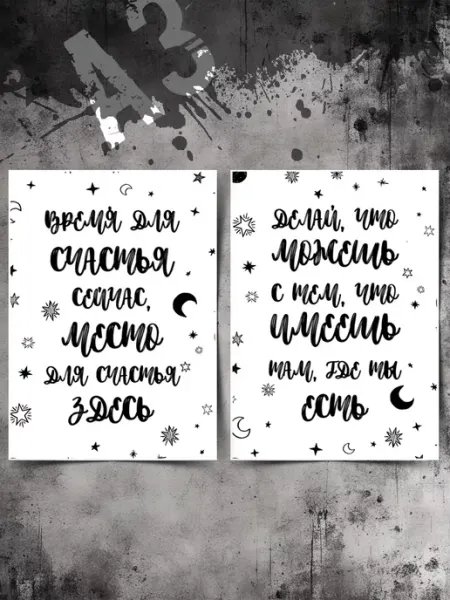 А3
ВРЕМЯ ДЛЯ
СЧАСТЬЯ
СЕЙЧАС,
МЕСТО
ДЛЯ СЧАСТЬЯ
ЗДЕСЬ
ДЕЛАЙ, ЧТО
МОЖЕШЬ
С ТЕМ, ЧТО
ИМЕЕШЬ
ТАМ, ГДЕ ТЫ
ЕСТЬ